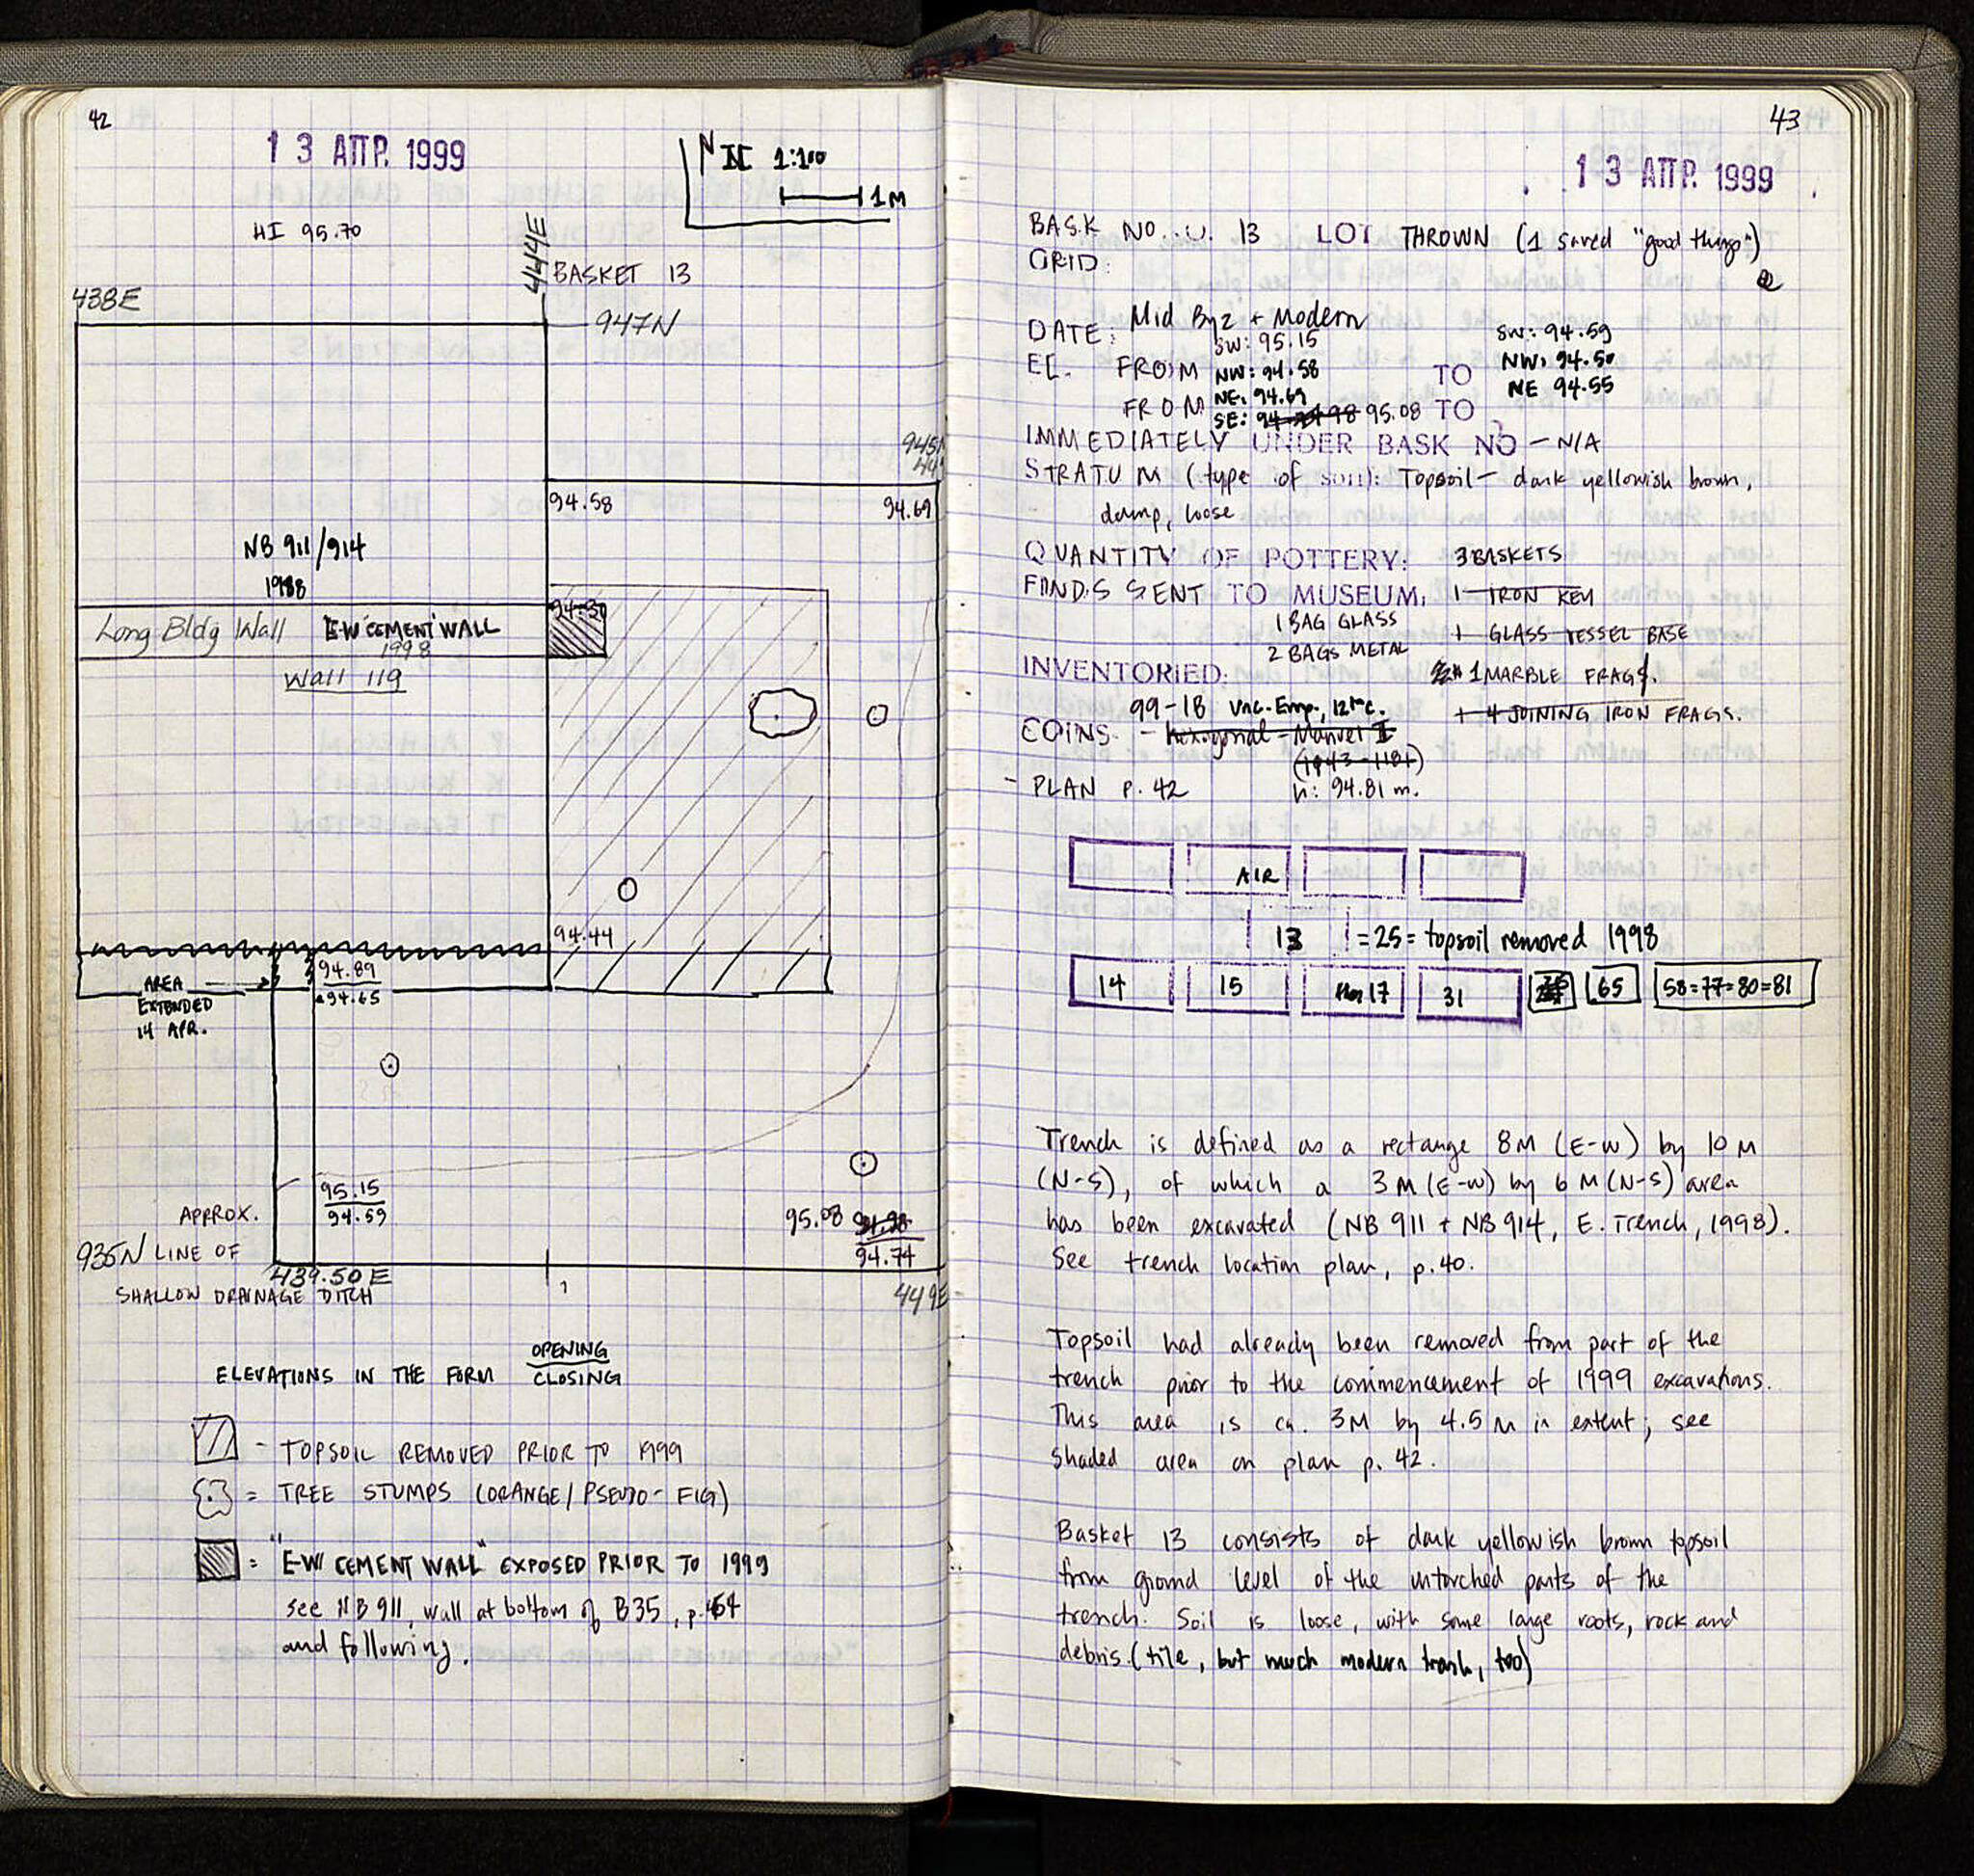 42
13 ΑΠΡ. 1999
N 1:100
1M
HI 95.70
444E
BASKET 13
438E
947N
945N
94.58 94.69
NB 911/914
1988
94.30
Long Bldg Wall E-W "CEMENT" WALL
1998
Wall 119
94.44
AREA
EXTENDED
14 APR.
94.89
94.65
95.15
94.59
APPROX.
935N LINE OF
439.50 E
SHALLOW DRAINAGE DITCH
95.08
94.74
449E
ELEVATIONS IN THE FORM OPENING
CLOSING
- TOPSOIL REMOVED PRIOR TO 1999
= TREE STUMPS (ORANGE/PSEUDO-FIG)
= "E-W CEMENT WALL" EXPOSED PRIOR TO 1999
see NB 911, wall at bottom of B35, p.
and following.
43
13 ΑΠΡ. 1999
BASK NO. 13 LOT THROWN (1 saved "good things")
GRID:
DATE: Mid Byz + Modern
EL. FROM SW: 95.15
NW: 94.58
NE: 94.69
FROM SE: 95.08
TO SW: 94.59
NW: 94.50
NE 94.55
TO
IMMEDIATELY UNDER BASK NO - N/A
STRATUM (type of soil): Topsoil - dark yellowish brown,
damp, loose
QUANTITY OF POTTERY: 3 BASKETS
FINDS SENT TO MUSEUM: 1 IRON KEY
1 BAG GLASS
1 GLASS VESSEL BASE
2 BAGS METAL
INVENTORIED: 1 MARBLE FRAG.
99-18 Unc. Emp., 12thc.
+ 4 JOINING IRON FRAGS.
COINS - hexagonal - Manuel I
(1143-1181)
- PLAN P. 42 h: 94.81 m.
AIR
13 = 25 = topsoil removed 1998
14 15 17 31 65 58=77=80=81
Trench is defined as a rectange 8M (E-W) by 10 M
(N-S), of which a 3M (E-W) by 6 M (N-S) area
has been excavated (NB 911 + NB 914, E. Trench, 1998).
See trench location plan, p. 40.
Topsoil had already been removed from part of the
trench prior to the commencement of 1999 excavations.
This area is ca. 3M by 4.5 M in extent; see
shaded area on plan p. 42.
Basket 13 consists of dark yellowish brown topsoil
from ground level of the untorched parts of the
trench. Soil is loose, with some large roots, rock and
debris. (tile, but much modern trash, too)